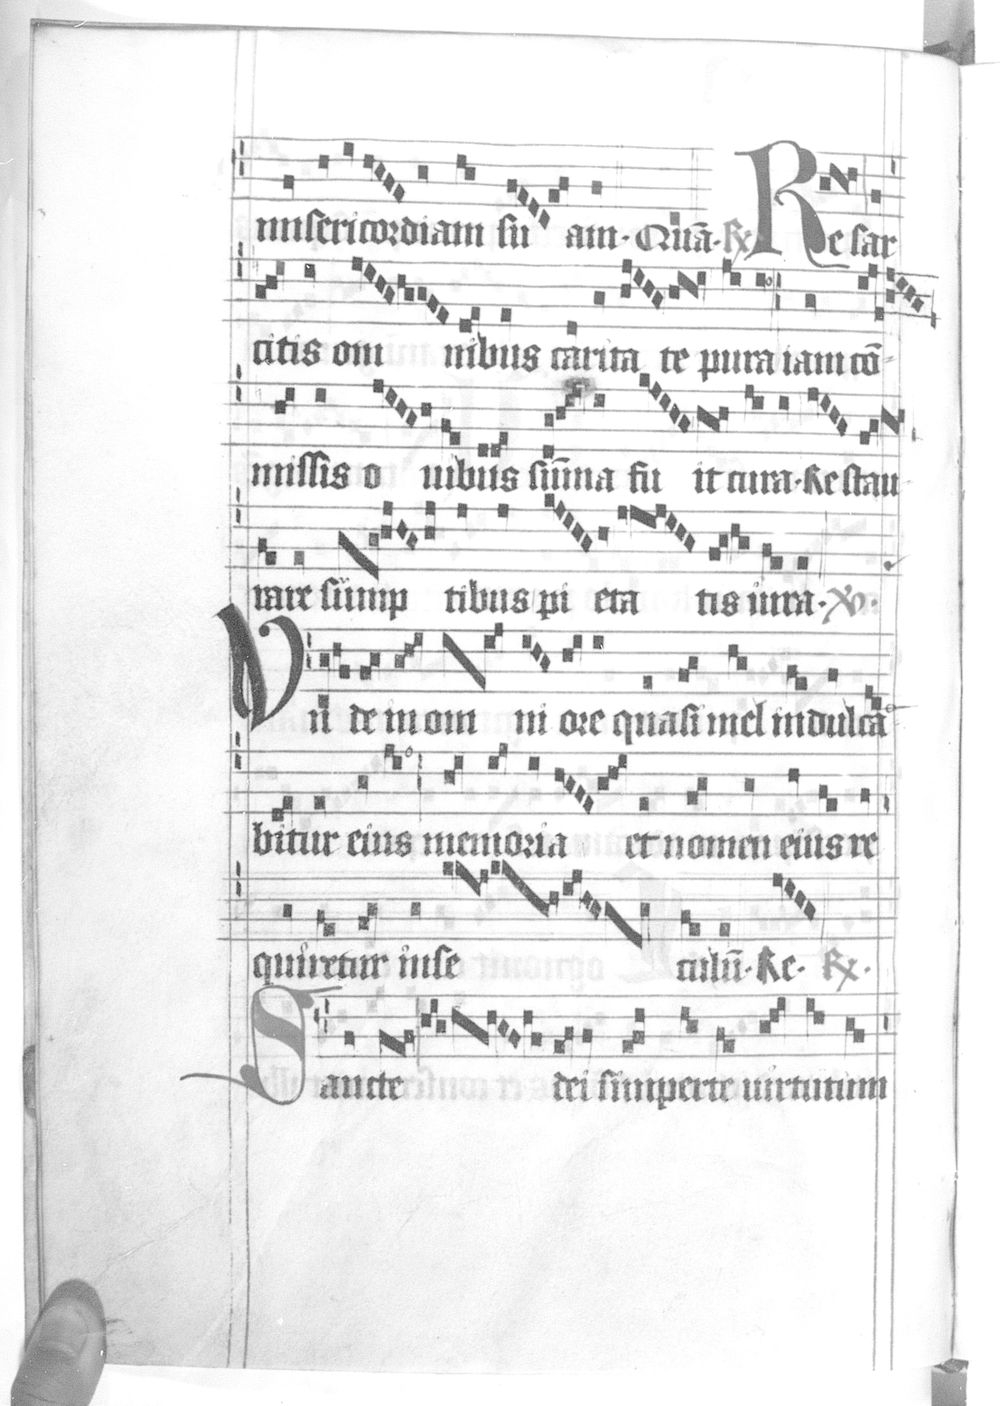 misericordiam su am. Quā. ℟ Resar
citis om nibus carita te pura iam cō
missis o uibus sūma fu it cura. Restau
rare sūmp tibus pi eta tis iura. ℣.
Un de in om ni ore quasi mel indulca
bitur eius memoria et nomen eius re
quiretur in se culū. Re. ℟.
Sancte dei simperte uirtutum